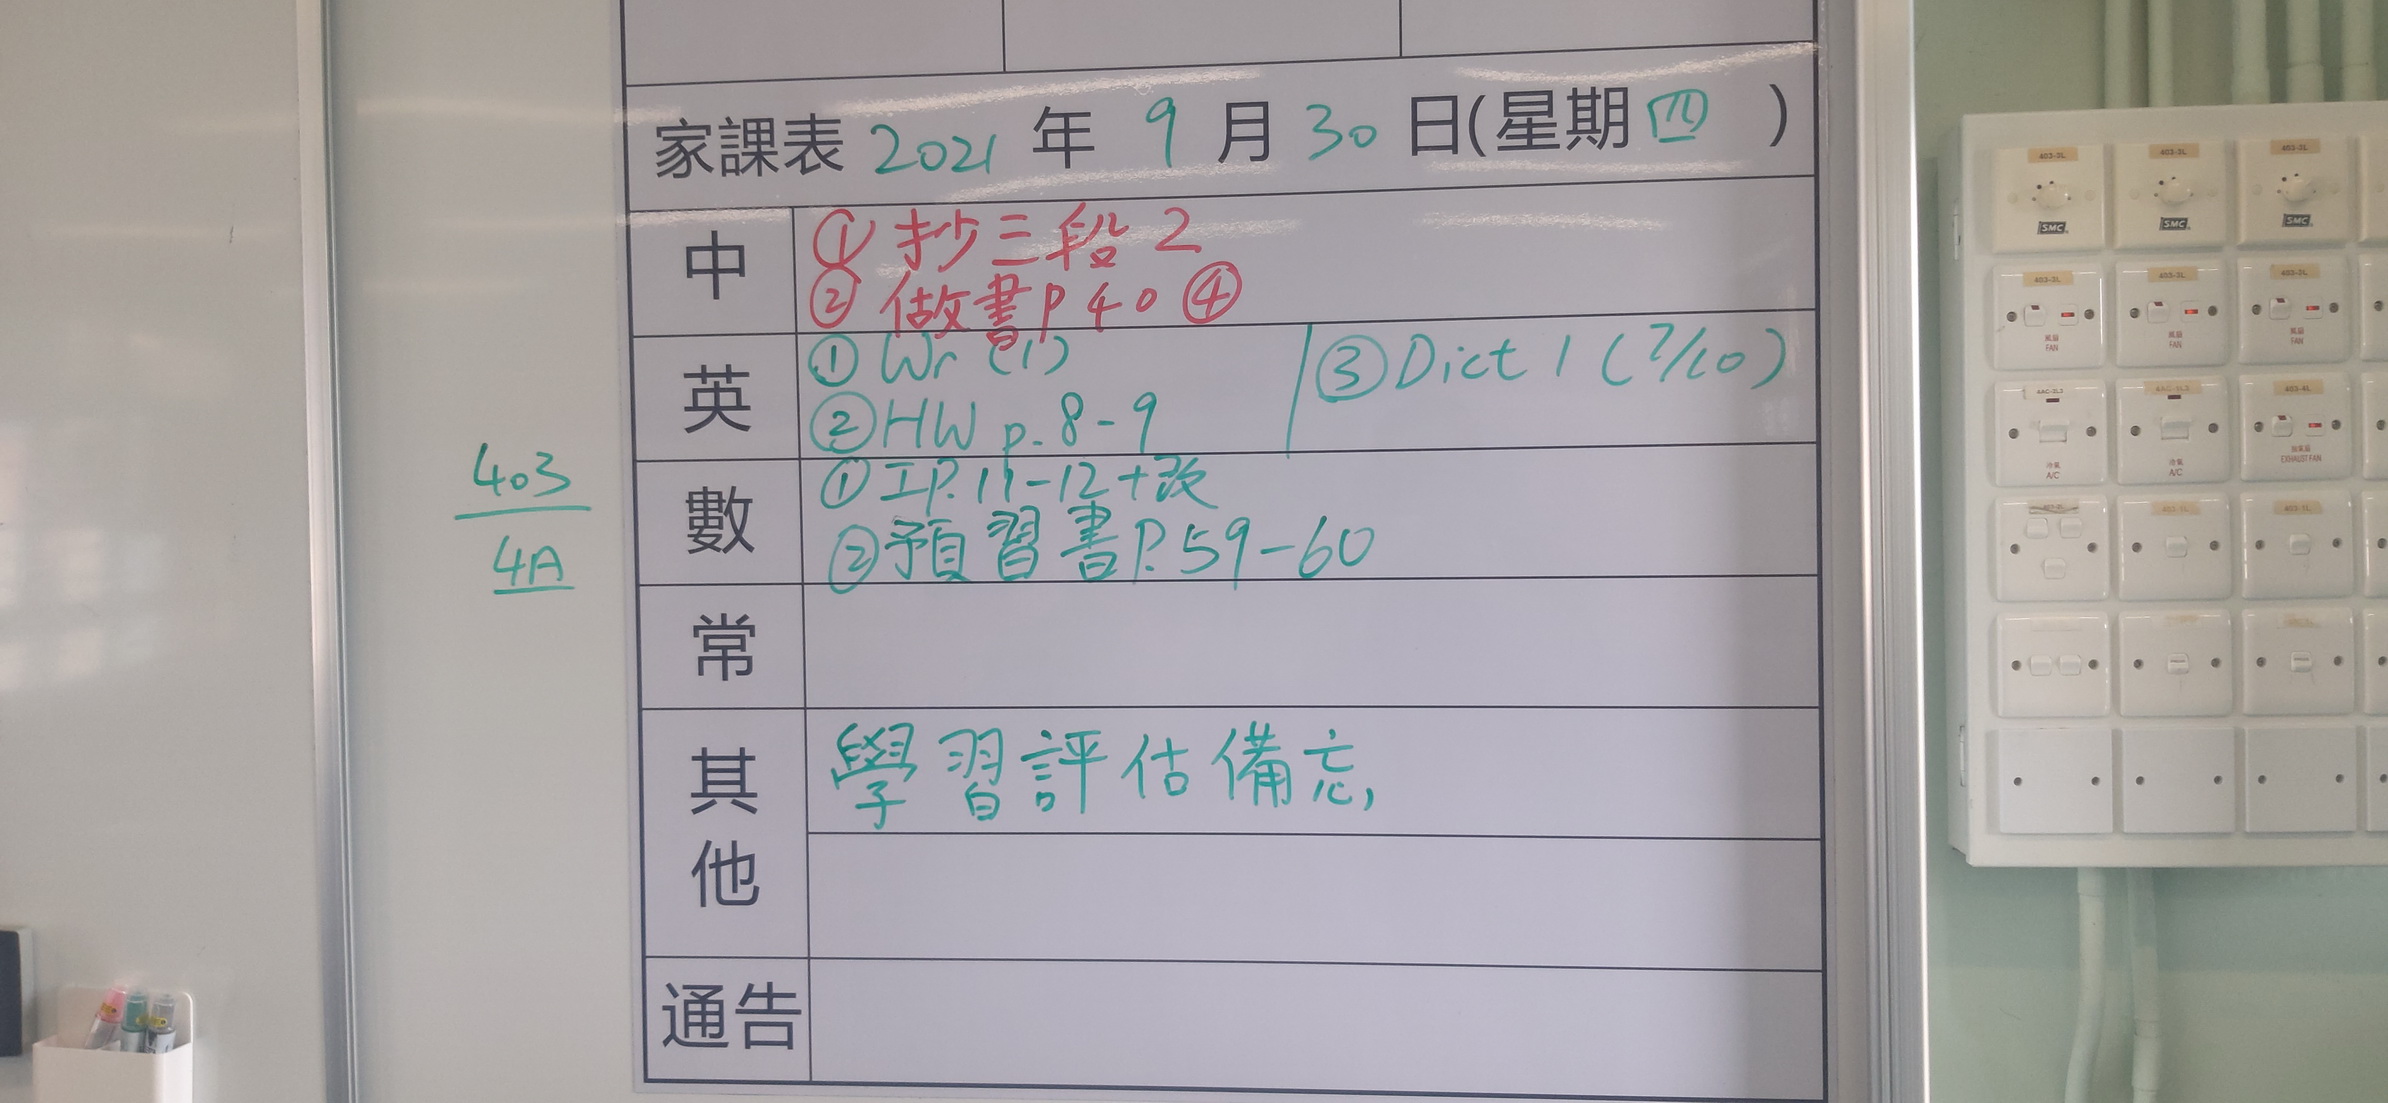 家課表 2021 年 9 月 30 日(星期四)
中
① 抄三段 2
② 做書 p 40 ④
英
① Wr (1)
② HW p. 8-9
③ Dict 1 (7/10)
數
① 工P. 11-12+改
② 預習書P. 59-60
常
其他
學習評估備忘,
通告
403
4A
403-3L
403-3L
403-3L
SMC
SMC
SMC
403-3L
403-3L
403-3L
風扇
FAN
風扇
FAN
風扇
FAN
403-4L
冷氣
A/C
冷氣
A/C
EXHAUST FAN
403-1L
403-1L